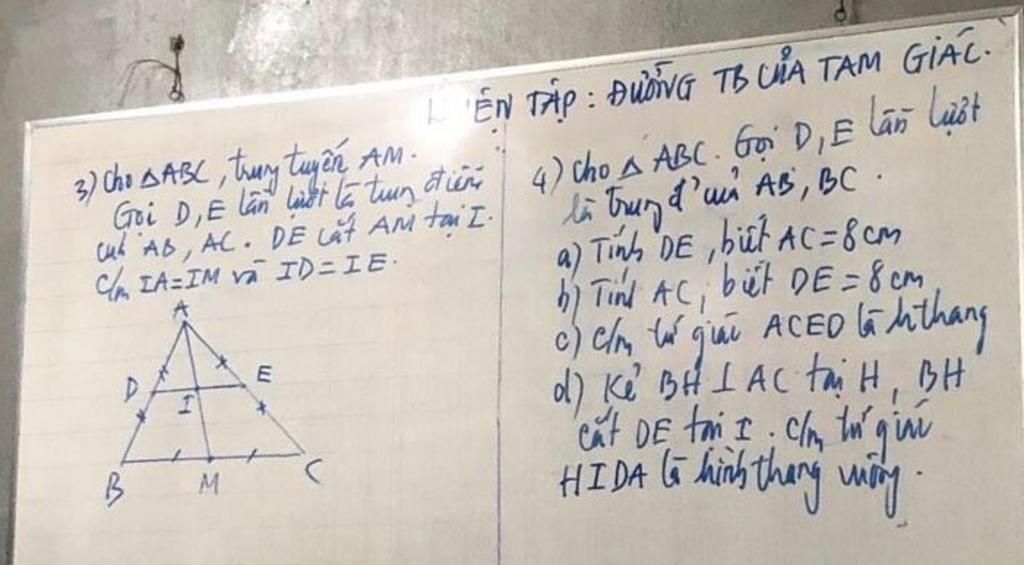 L ỆN TẬP: ĐƯỜNG TB CỦA TAM GIÁC.
3) Cho △ABC, trung tuyến AM.
Gọi D, E lần lượt là trung điểm
của AB, AC. DE cắt AM tại I.
C/m IA = IM và ID = IE.
A
D
E
I
B
M
C
4) Cho △ ABC. Gọi D, E lần lượt
là trung đ' của AB, BC.
a) Tính DE, biết AC = 8 cm
b) Tính AC, biết DE = 8 cm
c) C/m tứ giác ACED là hthang
d) Kẻ BH ⊥ AC tại H, BH
cắt DE tại I. C/m tứ giác
HIDA là hình thang vuông.